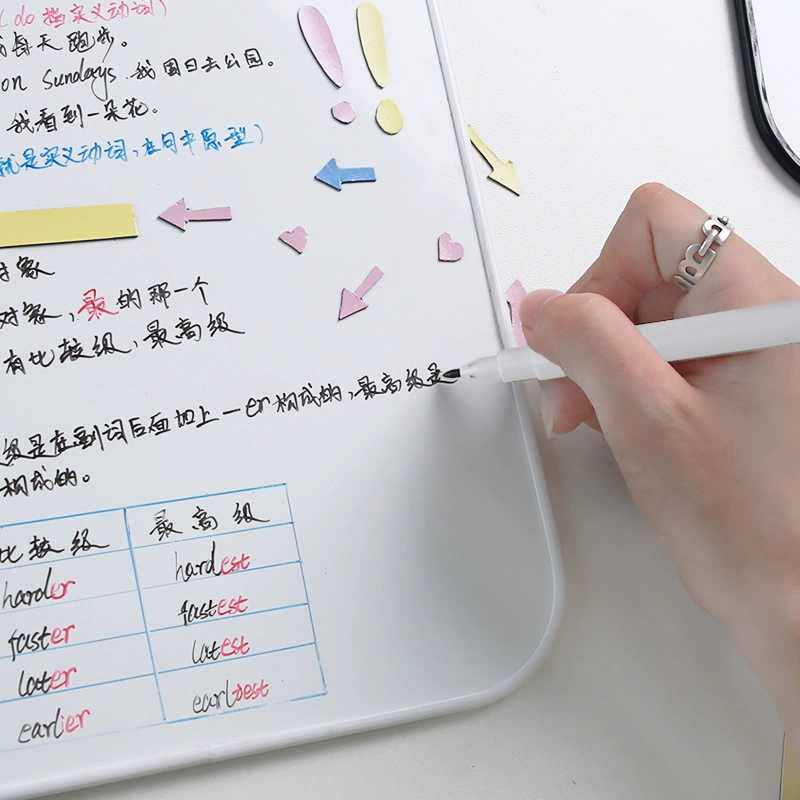 (do 当实义动词)
我每天跑步。
on Sundays 我周日去公园。
我看到一朵花。
就是实义动词,在句中原型)
对象
对象,最的那一个
有比较级,最高级
级是在副词后面加上-er构成的,最高级是
构成的。
比较级 最高级
harder hardest
faster fastest
later latest
earlier earliest